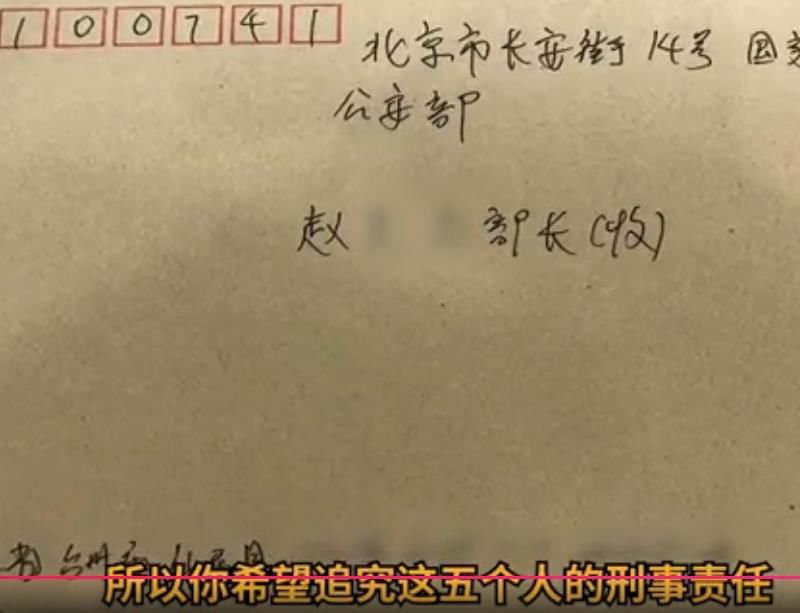 100741
北京市长安街14号 国家
公安部
赵 部长(收)
台州市
所以你希望追究这五个人的刑事责任